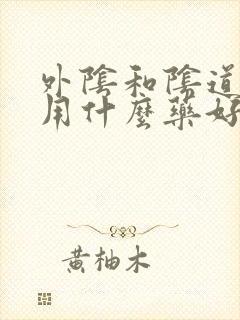 外陰和陰道
用什麼藥好
黃柚木